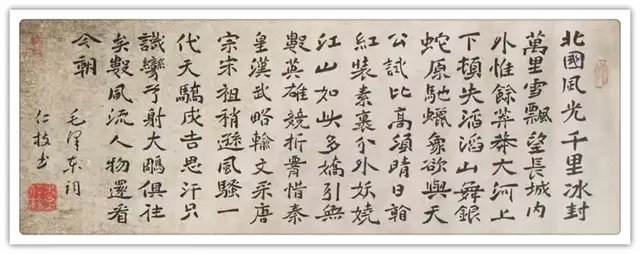 北國風光千里冰封
萬里雪飄望長城內
外惟餘莽莽大河上
下頓失滔滔山舞銀
蛇原馳蠟象欲與天
公試比高須晴日
紅裝素裹分外妖嬈
江山如此多嬌引無
數英雄競折惜秦
皇漢武略輸文采唐
宗宋祖稍遜風騷一
代天驕成吉思汗只
識彎弓射大鵰俱往
矣數風流人物還看
今朝
毛澤東詞
仁技书